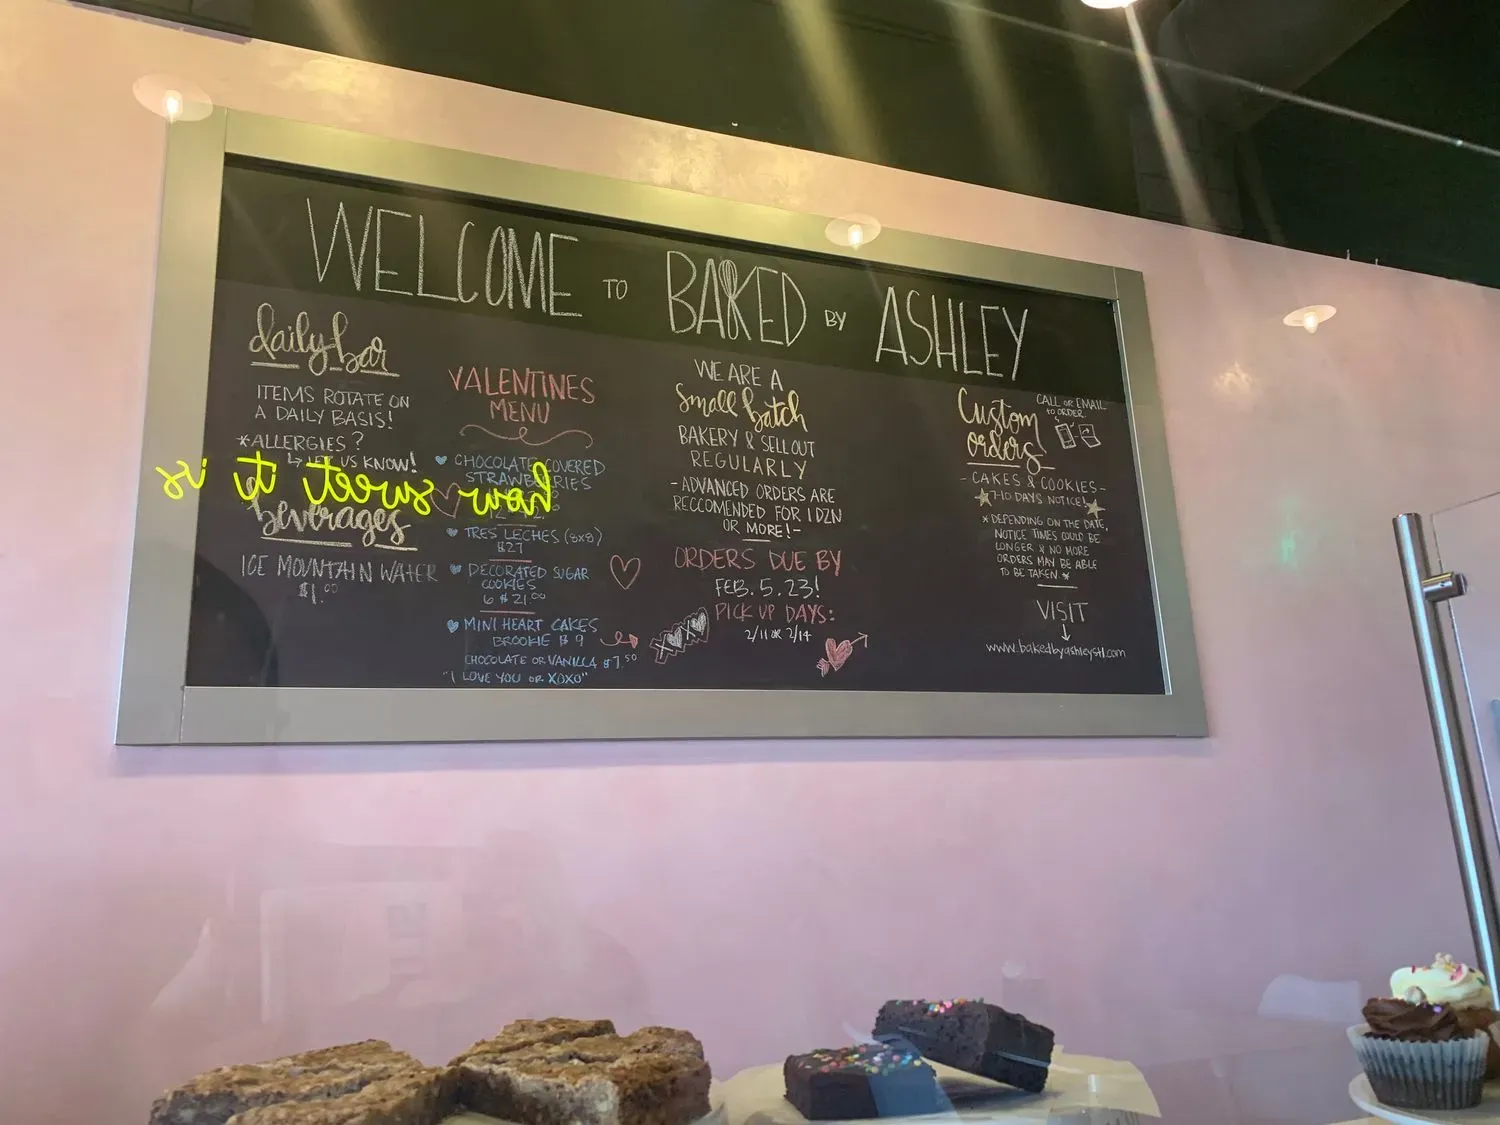 WELCOME TO BAKED BY ASHLEY
daily bar
ITEMS ROTATE ON
A DAILY BASIS!
*ALLERGIES?
↳ LET US KNOW!
beverages
ICE MOUNTAIN WATER
$1.00
VALENTINES
MENU
CHOCOLATE COVERED
STRAWBERRIES
TRES LECHES (8x8)
$27
DECORATED SUGAR
COOKIES
6 $21.00
MINI HEART CAKES
BROOKIE $9
CHOCOLATE OR VANILLA $7.50
"I LOVE YOU OR XOXO"
how sweet it is
WE ARE A
Small batch
BAKERY & SELLOUT
REGULARLY
-ADVANCED ORDERS ARE
RECCOMENDED FOR 1 DZN
OR MORE!-
ORDERS DUE BY
FEB. 5. 23!
PICK UP DAYS:
2/11 OR 2/14
XOXO
Custom
orders
CALL OR EMAIL
to ORDER
- CAKES & COOKIES -
7-10 DAYS NOTICE!
*DEPENDING ON THE DATE,
NOTICE TIMES COULD BE
LONGER & NO MORE
ORDERS MAY BE ABLE
TO BE TAKEN*
VISIT
↓
www.bakedbyashleystl.com